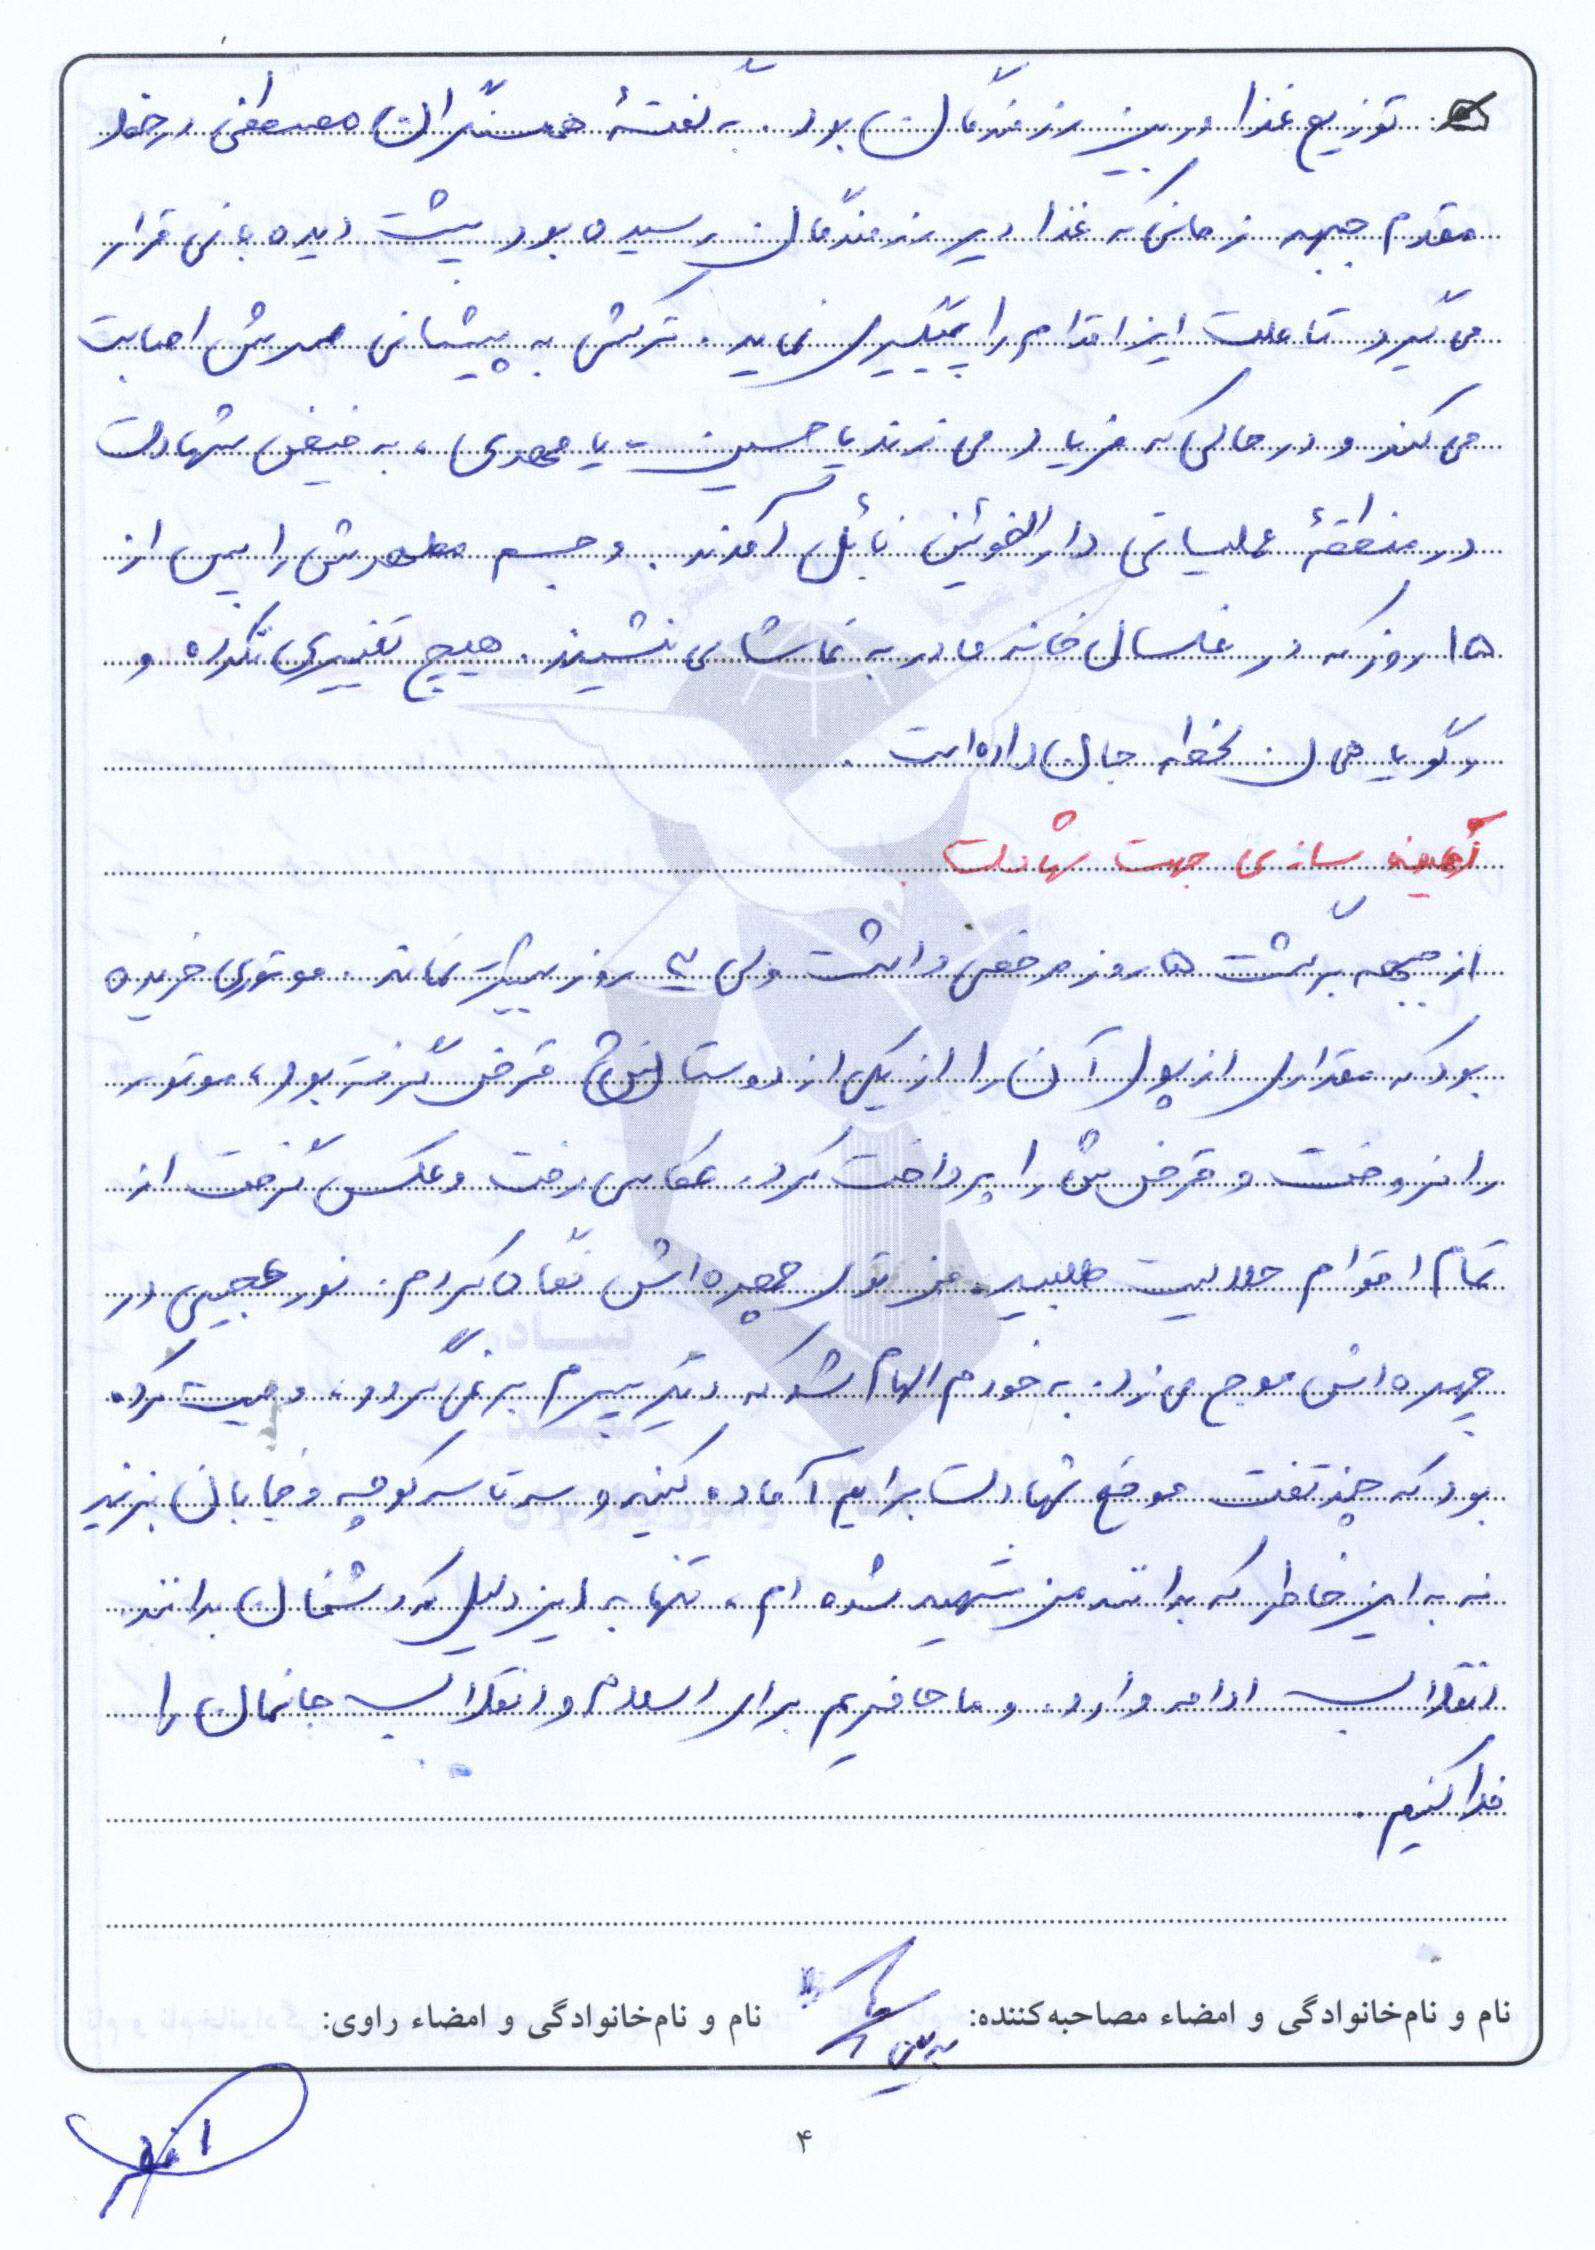 توزیع غذا در بین رزمندگان بود. به گفتهٔ همسنگران مصطفی در خط
مقدم جبهه زمانی که غذا دیر رزمندگان رسیده بود پشت دیده بانی قرار
می گیرد تا علت این اقدام را پیگیری نماید. ترکش به پیشانی اصابت
می کند و در حالی که فریاد می زند یا حسین، یا مهدی، به فیض شهادت
در منطقهٔ عملیاتی دارالخوئین نائل آمدند. و جسم مطهرش را پس از
۱۵ روز که در غسال خانه مادر به تماشا می نشیند. هیچ تغییری نکرده و
و گویا همان لحظه جان داده است.
زمینه سازی جهت شهادت
از جبهه برگشت ۱۵ روز مرخصی داشت ولی ۳ روز بیشتر نماند. موتوری خریده
بود که مقداری از پول آن را از یکی از دوستانش قرض گرفته بود، موتور
را فروخت و قرضش را پرداخت کرد. عکاسی رفت و عکس گرفت از
تمام اقوام حلالیت طلبید. من توی چهره اش نگاه کردم. نور عجیبی در
چهره اش موج می زد. به خودم الهام شد که دیگر پسرم برنمی گردد، وصیت کرده
بود که چند تفت موقع شهادت برایم آماده کنید و سرتاسر کوچه و خیابان بزنید
نه به این خاطر که بدانند من شهید شده ام، تنها به این دلیل که دشمنان بدانند
انقلاب ادامه دارد. و ما حاضریم برای اسلام و انقلاب جانمان را
فدا کنیم.
نام و نام‌خانوادگی و امضاء مصاحبه‌کننده: نام و نام‌خانوادگی و امضاء راوی:
۴